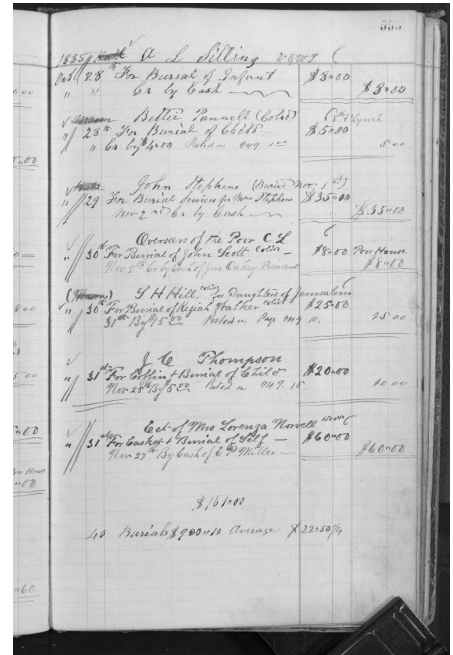 1885 A L Silling
Oct 28th For Burial of Infant $8.00
" " Cr by Cash $8.00
Bettie Pannell (Cold) 8th & Lynch
" 28th For Burial of Child $5.00
" Cr by $4.00 Posted on 949 1.00 5.00
John Stephens (Buried Nov. 1st)
" 29 For Burial Services for Mrs Stephens $35.00
Nov 2nd Cr by Cash $35.00
Overseers of the Poor C L
" 30th For Burial of John Scott Cold $8.00 Poor House
Nov 7th Cr by Cash of Jas $8.00
S H Hill, Cold for Daughters of Jerusalem
" 30th For Burial of Keziah Walker Cold $25.00
31st By $15.00 Posted on Page 949 10. 25.00
J. C. Thompson
" 31st For Coffin & Burial of Child $20.00
Nov 25th By 5.00 Posted on 949. 15
Est of Mrs Lorenza Norvell
" 31st For Casket & Burial of Self $60.00
Nov 27th By Cash of Miller $60.00
$161.00
40 Burials $900.10 Average $22.50 1/4